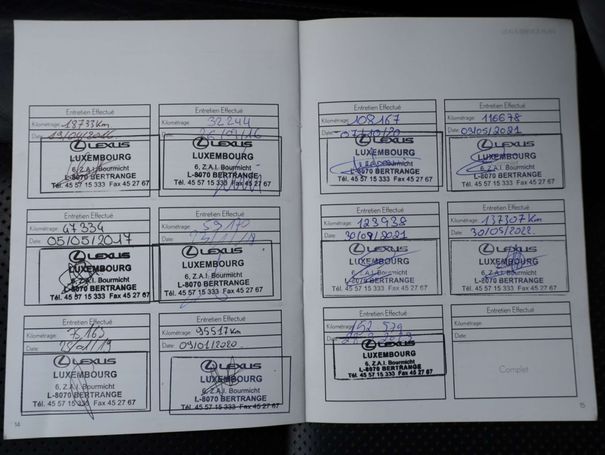 Entretien Effectué
Kilométrage 18733Km
Date 19/04/2016
LEXUS
LUXEMBOURG
6, Z.A.I. Bourmicht
L-8070 BERTRANGE
Tél. 45 57 15 333 Fax 45 27 67
Entretien Effectué
Kilométrage 32244
Date
LEXUS
LUXEMBOURG
6, Z.A.I. Bourmicht
L-8070 BERTRANGE
Tél. 45 57 15 333 Fax 45 27 67
Entretien Effectué
Kilométrage 47334
Date 05/05/2017
LEXUS
LUXEMBOURG
6, Z.A.I. Bourmicht
L-8070 BERTRANGE
Tél. 45 57 15 333 Fax 45 27 67
Entretien Effectué
Kilométrage
Date
LEXUS
LUXEMBOURG
6, Z.A.I. Bourmicht
L-8070 BERTRANGE
Tél. 45 57 15 333 Fax 45 27 67
Entretien Effectué
Kilométrage
Date
LEXUS
LUXEMBOURG
6, Z.A.I. Bourmicht
L-8070 BERTRANGE
Tél. 45 57 15 333 Fax 45 27 67
Entretien Effectué
Kilométrage 95517Km
Date 09/01/2020
LEXUS
LUXEMBOURG
6, Z.A.I. Bourmicht
L-8070 BERTRANGE
Tél. 45 57 15 333 Fax 45 27 67
14
Entretien Effectué
Kilométrage 108167
Date 07/10/20
LEXUS
LUXEMBOURG
6, Z.A.I. Bourmicht
L-8070 BERTRANGE
Tél. 45 57 15 333 Fax 45 27 67
Entretien Effectué
Kilométrage 116678
Date 03/05/2021
LEXUS
LUXEMBOURG
6, Z.A.I. Bourmicht
L-8070 BERTRANGE
Tél. 45 57 15 333 Fax 45 27 67
Entretien Effectué
Kilométrage 123938
Date
LEXUS
LUXEMBOURG
6, Z.A.I. Bourmicht
L-8070 BERTRANGE
Tél. 45 57 15 333 Fax 45 27 67
Entretien Effectué
Kilométrage 137307 Km
Date 30/05/2022
LEXUS
LUXEMBOURG
6, Z.A.I. Bourmicht
L-8070 BERTRANGE
Tél. 45 57 15 333 Fax 45 27 67
Entretien Effectué
Kilométrage
Date
LEXUS
LUXEMBOURG
6, Z.A.I. Bourmicht
L-8070 BERTRANGE
Tél. 45 57 15 333 Fax 45 27 67
Entretien Effectué
Kilométrage
Date
Complet
15